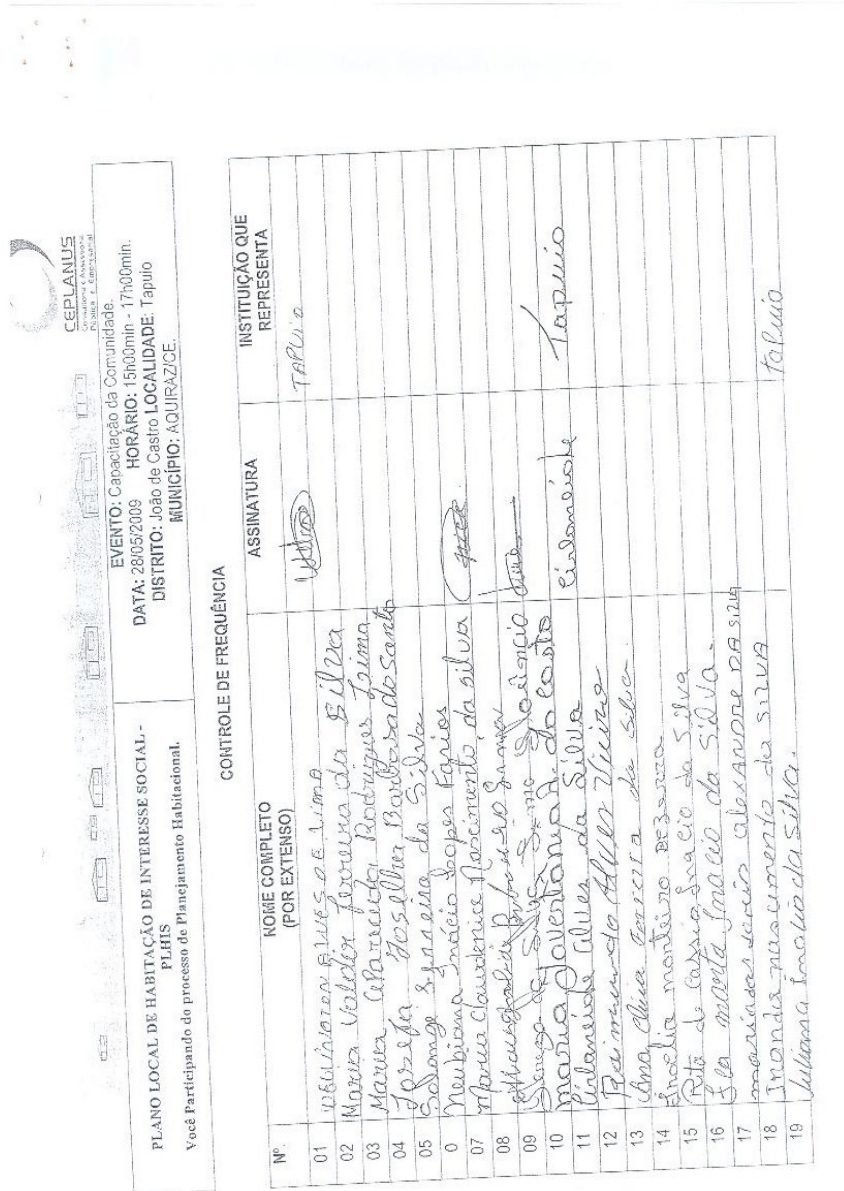 CEPLANUS
Consultoria e Assessoria
Pública e Empresarial
PLANO LOCAL DE HABITAÇÃO DE INTERESSE SOCIAL -
PLHIS
Você Participando do processo de Planejamento Habitacional.
EVENTO: Capacitação da Comunidade.
DATA: 28/05/2009 HORÁRIO: 15h00min - 17h00min.
DISTRITO: João de Castro LOCALIDADE: Tapuio
MUNICÍPIO: AQUIRAZ/CE.
CONTROLE DE FREQUÊNCIA
Nº NOME COMPLETO (POR EXTENSO) ASSINATURA INSTITUIÇÃO QUE REPRESENTA
01 ALVES DE LIMA TAPUIO
02 Maria Valdir Ferreira da Silva
03 Maria Aparecida Rodrigues Loima
04 Josefa Joselha Barbosa do Santo
05 Solange Ferreira da Silva
0 Neubiana Inácio Lopes Farios
07 Maria Claudenice Nascimento da silva
08
09 da Silva
10 maria A. do casto
11 Cirlaneide alves da Silva Cirlaneide Tapuio
12 Raimundo Alves Vieira
13 Ana Ferreira da Silva
14 monteiro Bezerra
15 Rita de Cassia Inacio da Silva
16 marta Inacio da Silva.
17 maria alexandre DA silva
18 nascimento da SILVA tapuio
19 Juliana Inacio da Silva.